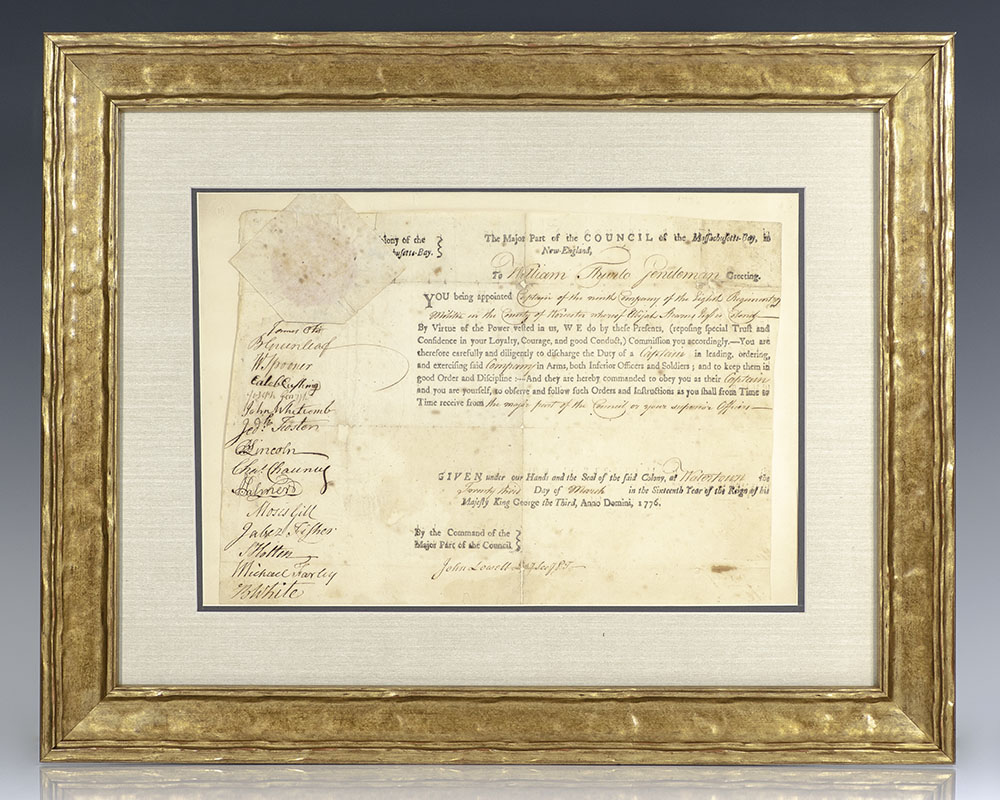 lony of the
husetts-Bay.
The Major Part of the COUNCIL of the Massachusetts-Bay, in
New-England,
To William Thurlo Gentleman Greeting.
YOU being appointed Captain of the ninth Company of the eighth Regiment of
Militia in the County of Worcester whereof Elijah Stearns Esqr. is Colonel
By Virtue of the Power vested in us, WE do by these Presents, (reposing special Trust and
Confidence in your Loyalty, Courage, and good Conduct,) Commission you accordingly.—You are
therefore carefully and diligently to discharge the Duty of a Captain in leading, ordering,
and exercising said Company in Arms, both Inferior Officers and Soldiers; and to keep them in
good Order and Discipline:—And they are hereby commanded to obey you as their Captain
and you are yourself, to observe and follow such Orders and Instructions as you shall from Time to
Time receive from the major part of the Council or your superior Officers—
James Otis
B Greenleaf
W Spooner
Caleb Cushing
John Whetcomb
Jedh. Foster
B Lincoln
Chas. Chauncy
J Palmer
Moses Gill
Jabez Fisher
S Holten
Michael Farley
B White
GIVEN under our Hands and the Seal of the said Colony, at Watertown the
Day of March in the Sixteenth Year of the Reign of his
Majesty King George the Third, Anno Domini, 1776.
By the Command of the
Major Part of the Council.
John Lowell